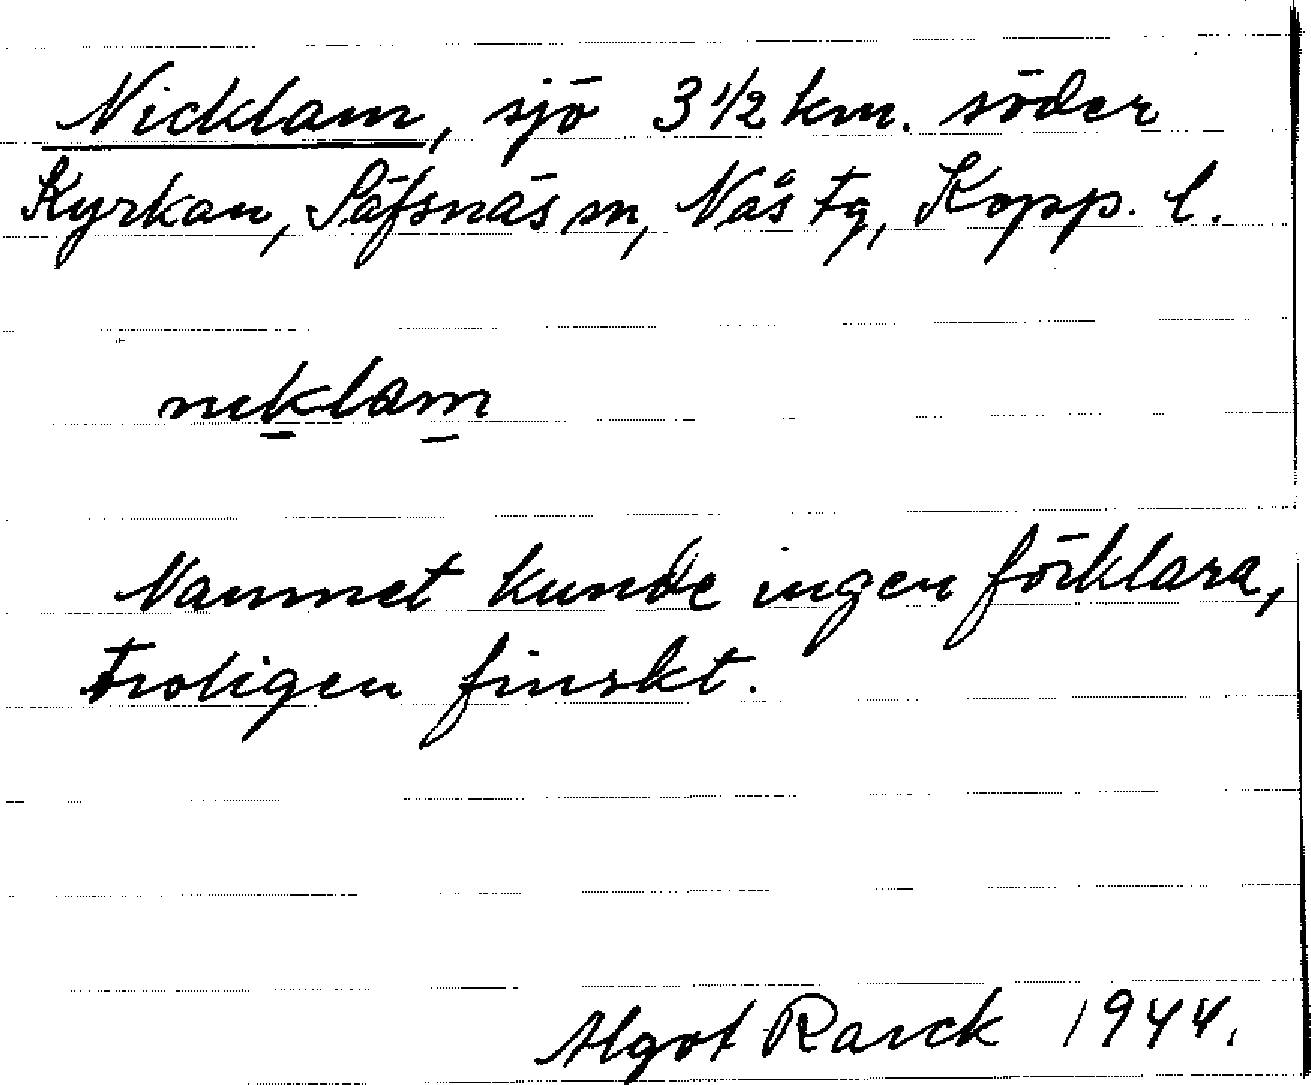 Nicklam, sjö 3 1/2 km. söder
Kyrkan, Säfsnäs sn, Nås tg, Kopp. l.
niklam
Namnet kunde ingen förklara,
troligen finskt.
Algot Rarck 1944.